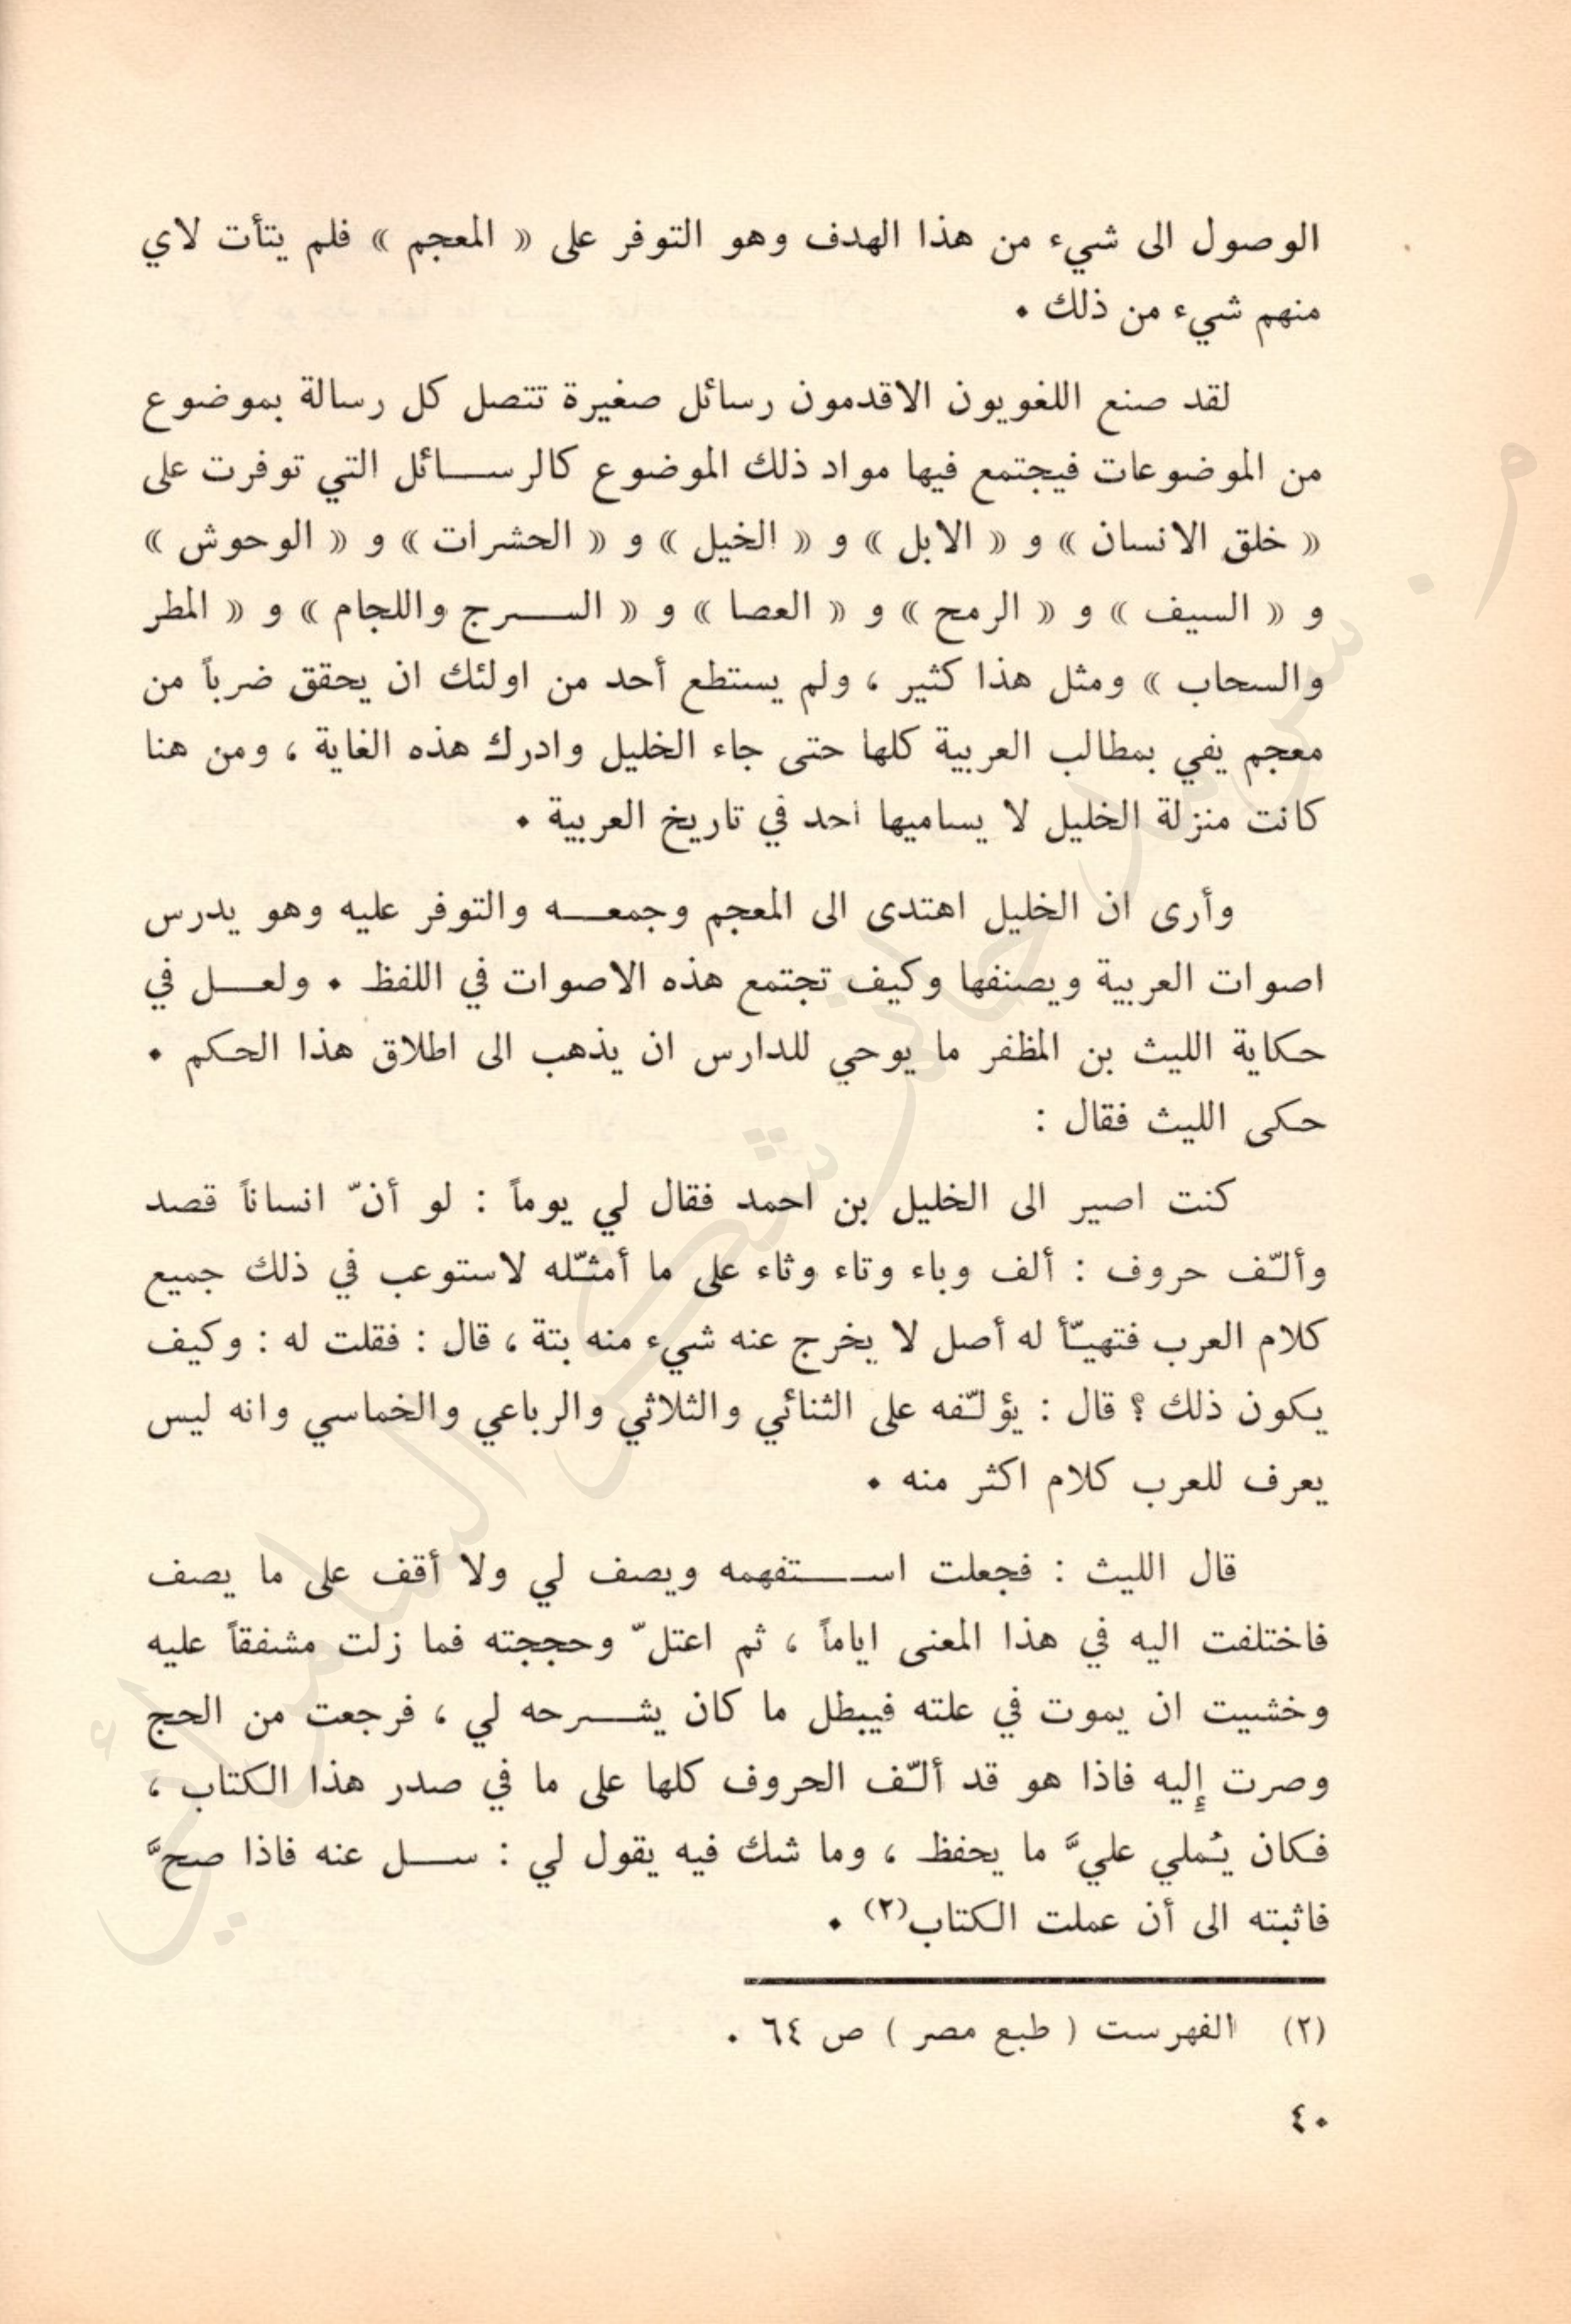 الوصول الى شيء من هذا الهدف وهو التوفر على « المعجم » فلم يتأت لاي
منهم شيء من ذلك ٠
لقد صنع اللغويون الاقدمون رسائل صغيرة تتصل كل رسالة بموضوع
من الموضوعات فيجتمع فيها مواد ذلك الموضوع كالرســـائل التي توفرت على
« خلق الانسان » و « الابل » و « الخيل » و « الحشرات » و « الوحوش »
و « السيف » و « الرمح » و « العصا » و « الســـرج واللجام » و « المطر
والسحاب » ومثل هذا كثير ، ولم يستطع أحد من اولئك ان يحقق ضرباً من
معجم يفي بمطالب العربية كلها حتى جاء الخليل وادرك هذه الغاية ، ومن هنا
كانت منزلة الخليل لا يساميها أحد في تاريخ العربية ٠
وأرى ان الخليل اهتدى الى المعجم وجمعـــه والتوفر عليه وهو يدرس
اصوات العربية ويصنفها وكيف تجتمع هذه الاصوات في اللفظ ٠ ولعـــل في
حكاية الليث بن المظفر ما يوحي للدارس ان يذهب الى اطلاق هذا الحكم ٠
حكى الليث فقال :
كنت اصير الى الخليل بن احمد فقال لي يوماً : لو أنّ انساناً قصد
وألّف حروف : ألف وباء وتاء وثاء على ما أمثّله لاستوعب في ذلك جميع
كلام العرب فتهيّأ له أصل لا يخرج عنه شيء منه بتة ، قال : فقلت له : وكيف
يكون ذلك ؟ قال : يؤلّفه على الثنائي والثلاثي والرباعي والخماسي وانه ليس
يعرف للعرب كلام اكثر منه ٠
قال الليث : فجعلت اســـتفهمه ويصف لي ولا أقف على ما يصف
فاختلفت اليه في هذا المعنى اياماً ، ثم اعتلّ وحججته فما زلت مشفقاً عليه
وخشيت ان يموت في علته فيبطل ما كان يشـــرحه لي ، فرجعت من الحج
وصرت إليه فاذا هو قد ألّف الحروف كلها على ما في صدر هذا الكتاب ،
فكان يُملي عليَّ ما يحفظ ، وما شك فيه يقول لي : ســـل عنه فاذا صحَّ
فاثبته الى أن عملت الكتاب(٢) ٠
(٢) الفهرست ( طبع مصر ) ص ٦٤ ٠
٤٠